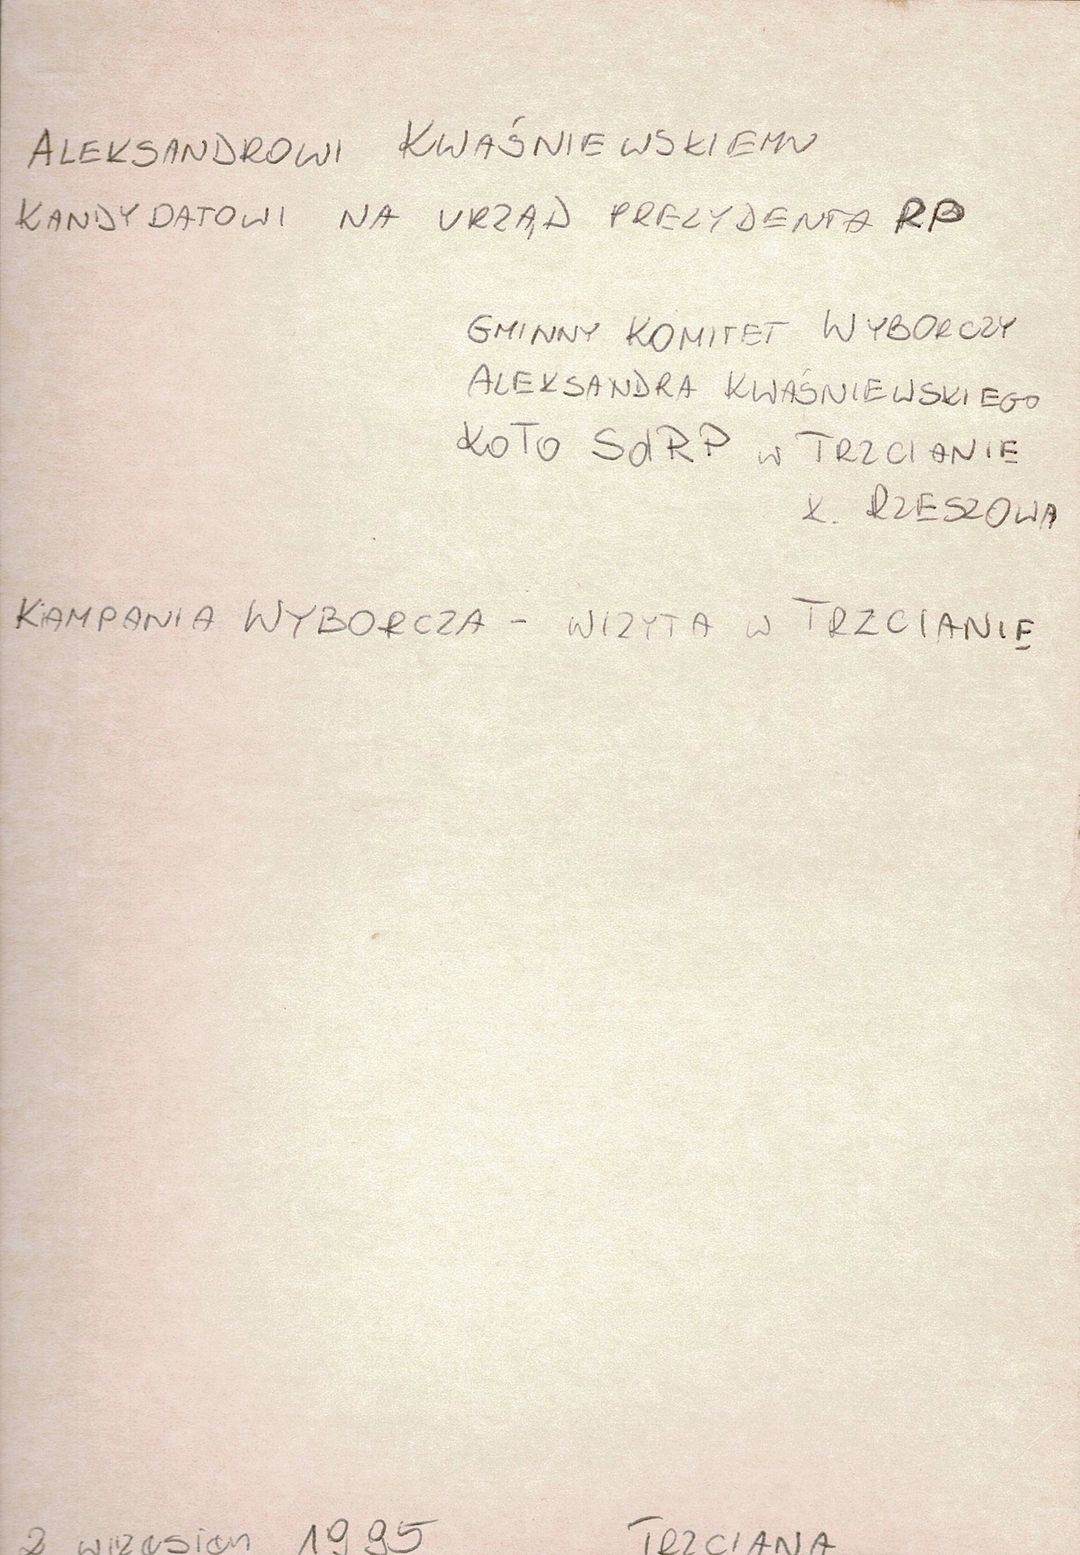 ALEKSANDROWI KWAŚNIEWSKIEMU
KANDYDATOWI NA URZĄD PREZYDENTA RP
GMINNY KOMITET WYBORCZY
ALEKSANDRA KWAŚNIEWSKIEGO
KOŁO SdRP w TRZCIANIE
K. RZESZOWA
KAMPANIA WYBORCZA - WIZYTA W TRZCIANIE
2 wrzesień 1995 TRZCIANA